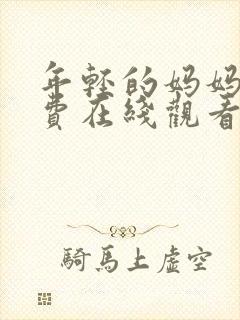 年輕的妈妈
費在綫觀看
騎馬上虛空